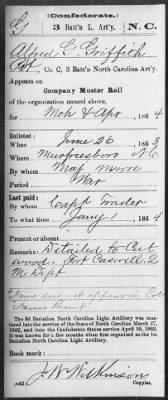 (Confederate.)
G 3 Batt'n L. Art'y. N.C.
Alfred C Griffith
Pvt, Co. C, 3 Batt'n North Carolina Art'y.
Appears on
Company Muster Roll
of the organization named above,
for Mch & Apr, 1864
Enlisted:
When June 26, 1863
Where Murfreesboro N.C.
By whom Maj Moore
Period War
Last paid:
By whom Capt
To what time Jany 1, 1864
Present or absent
Remarks: Detailed to Cut
wood. Fort Caswell, 2
M Dept
Name does not appear in Col.
Names Present
The 3d Battalion North Carolina Light Artillery was mustered into the service of the State of North Carolina March 27, 1862, and into the Confederate States service April 30, 1862. It was known for a few months when first organized as the 2d Battalion North Carolina Light Artillery.
Book mark:
J. W. Wilkinson
(642) Copyist.